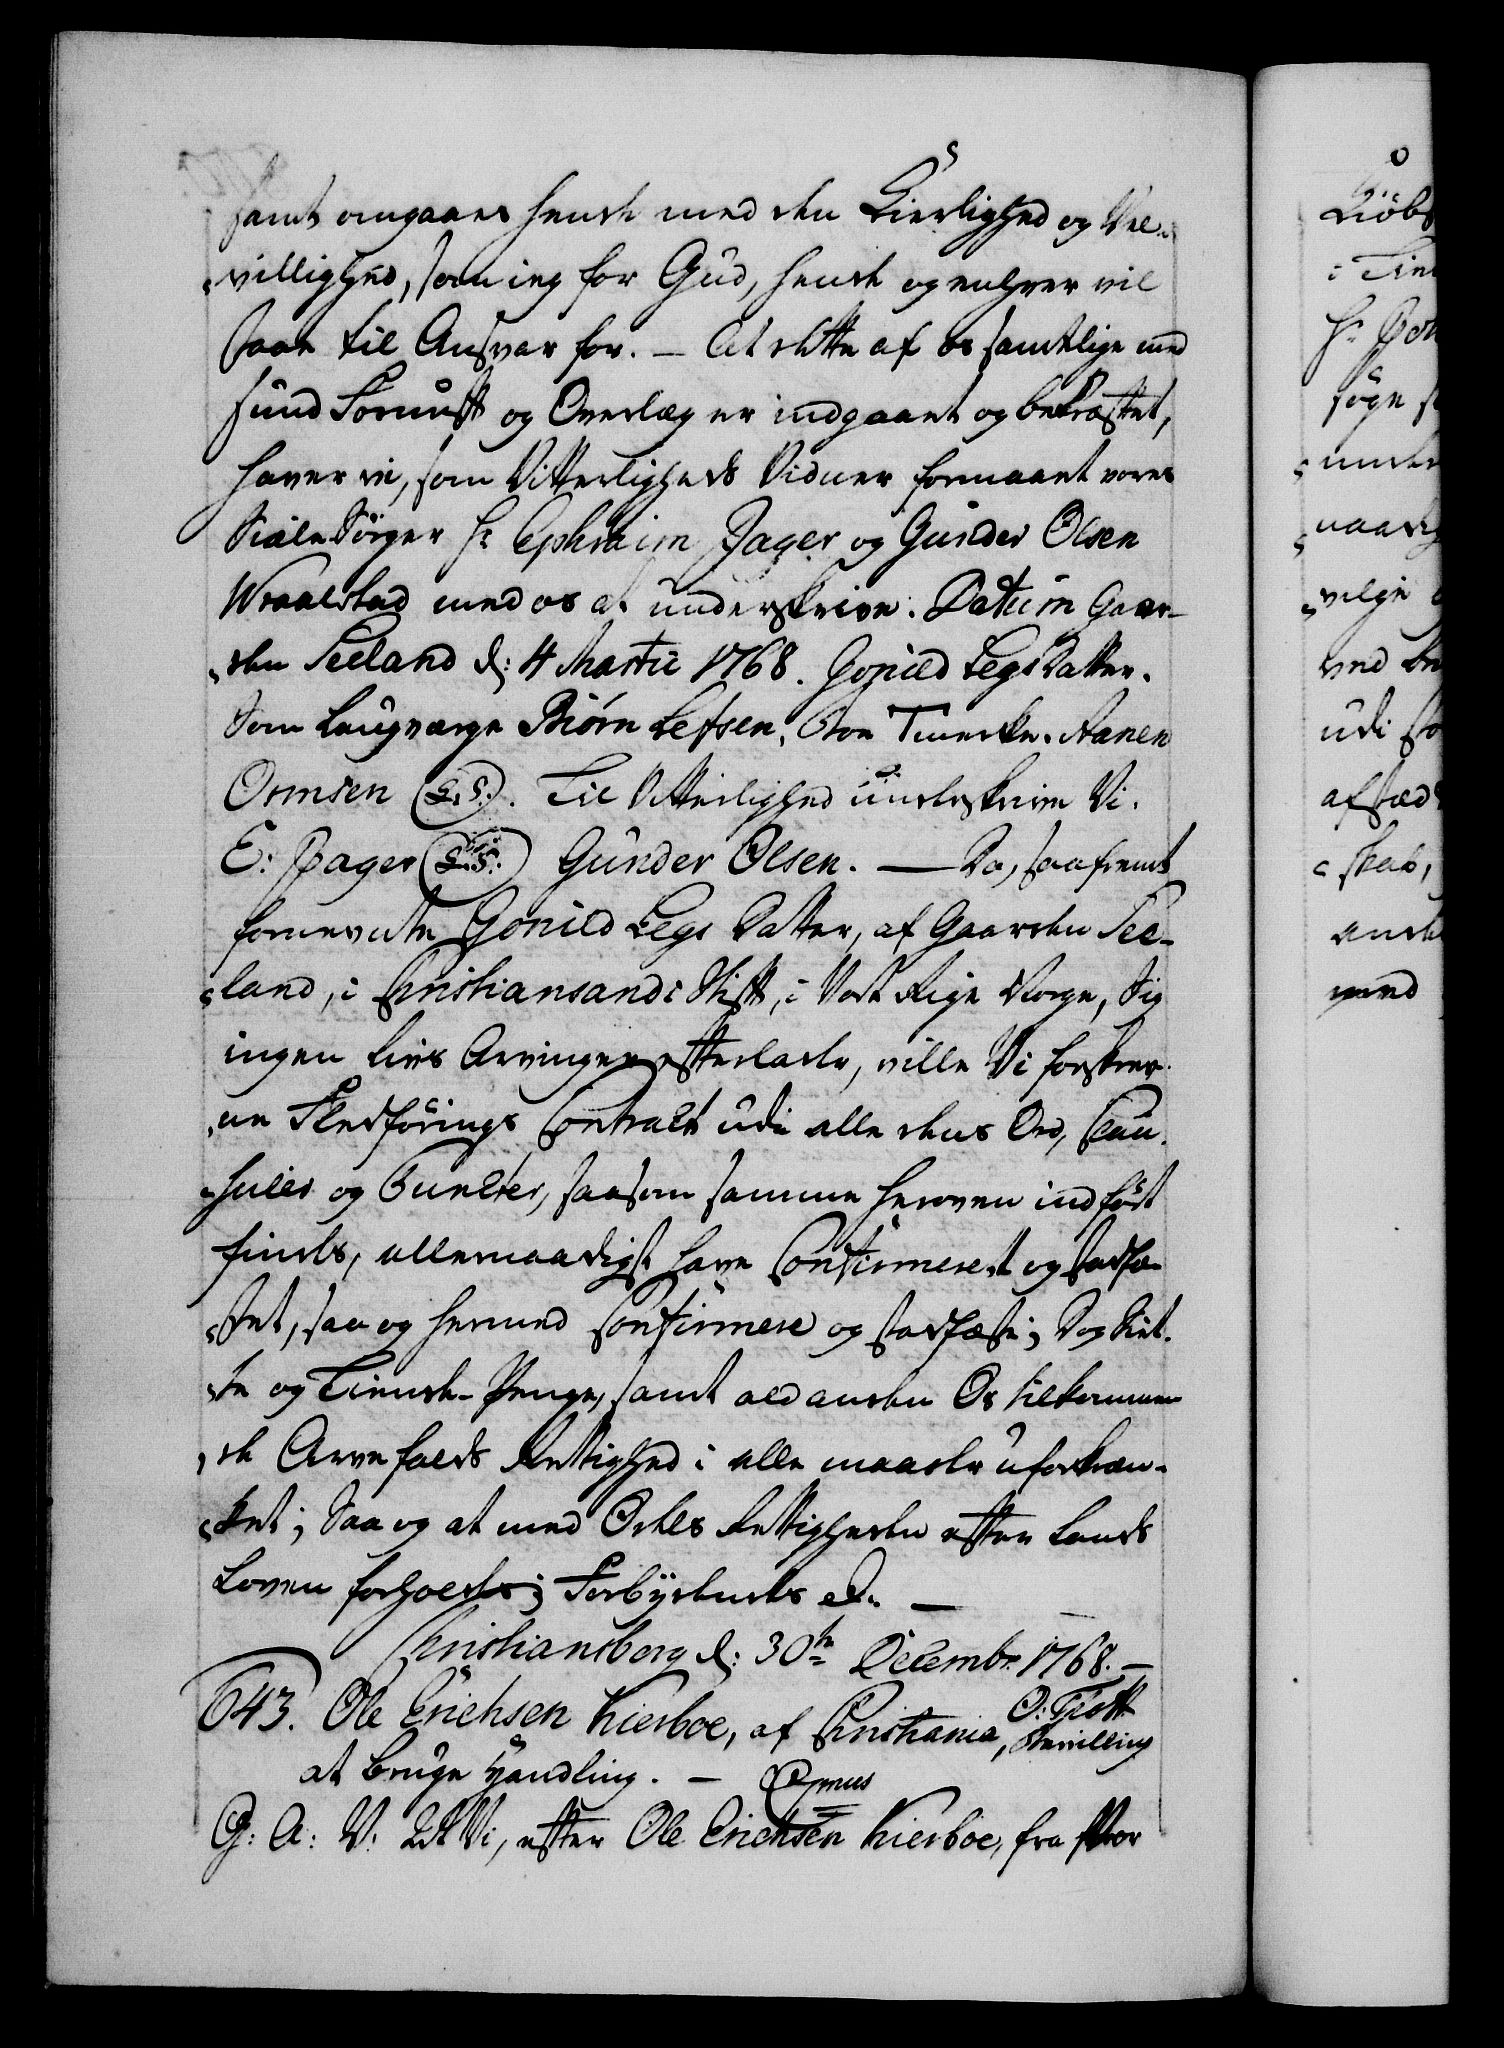 samt omgaaes hende med den Kierlighed og Vel-
villighed, som ieg for Gud, hende og enhver vil
staae til Ansvar for. — At dette af os samtlige med
sund Fornuft og Overlæg er indgaaet og bekræftet,
haver vi, som Vitterligheds Vidner formaaet vores
Siæle Sörger Hr Ephraim Jager og Gunder Olsen
Wraalstad med os at underskrive. Datum Gaar-
den Seeland d: 4 Martii 1768. Gonild Legs Datter.
Som Laugværge Biörn Lefsen, Boe Tveede. Aanen
Ormsen (L. S.). Til Vitterlighed underskrive Vi.
E: Jager (L. S.) Gunder Olsen. — Da, saafremt
fornevnte Gonild Legs Datter, af Gaarden See-
land, i Christiansands Stift, i Vort Rige Norge, Sig
ingen Livs Arvinger efterlader, ville Vi forskrev-
ne Fledförings Contract udi alle dens Ord, Clau-
suler og Puncter, saasom samme heroven indfört
findes, allernaadigst have Confirmeret og stadfæ-
stet, saa og hermed Confirmere og stadfæste; Dog Siet-
te og Tiende-Penge, samt ald anden Os tilkommen-
de Arvefalds Rettighed i alle maader uforkræn-
ket; Saa og at med Odels Rettigheden efter Lands
Loven forholdes; Forbydendes etc. —
Christiansborg d: 30te Decembr. 1768. —
O: Thott
643. Ole Erichsen Kierboe, af Christiania, Bevilling
at bruge Handling. —
G: A: V. at Vi, efter Ole Erichsen Kierboe, fra Vor
Kiöbs
i Tien
Hr
söge
unde
naadig
velge
ved
udi
afsted
skab,
ande
med